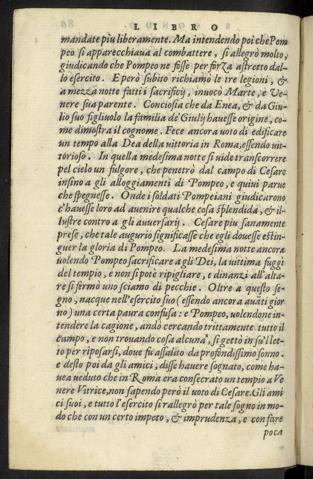 LIBRO
mandate piu liberamente. Ma intendendo poi che Pom
peo si apparecchiaua al combattere, si allegrò molto,
giudicando che Pompeo ne fosse per forza astretto dal-
lo esercito. E però subito richiamò le tre legioni, &
a mezza notte fatti i sacrificij, inuocò Marte, e Ve
nere sua parente. Conciosia che da Enea, & da Giu
lio suo figliuolo la familia de' Giulij hauesse origine, co
me dimostra il cognome. Fece ancora uoto di edificare
un tempio alla Dea della uittoria in Roma, essendo uit
torioso. In quella medesima notte fi uide transcorrere
pel cielo un fulgore, che penetrò dal campo di Cesare
insino a gli alloggiamenti di Pompeo, e quiui parue
che spegnesse. Onde i soldati Pompeiani giudicarono
c'hauesse loro ad auenire qualche cosa splendida, & il-
lustre contro a gli auuersarij. Cesare piu sanamente
prese, che tale augurio significasse che egli douesse estin
guer la gloria di Pompeo. La medesima notte ancora
uolendo Pompeo sacrificare a gli Dei, la uittima fuggì
del tempio, e non si potè ripigliare, e dinanzi all'alta-
re si fermò uno sciamo di pecchie. Oltre a questo se-
gno, nacque nell'esercito suo (essendo ancora auāti gior
no) una certa paura confusa: e Pompeo, uolendone in-
tendere la cagione, andò cercando trittamente tutto il
campo, e non trouando cosa alcuna, si gettò in su'l let-
to per riposarsi, doue fu assalito da profondissimo sonno.
e desto poi da gli amici, disse hauere sognato, come ha-
uea ueduto che in Roma era consecrato un tempio a Ve
nere Vitrice, non sapendo però il uoto di Cesare. Gli ami
ci suoi, e tutto l'esercito si rallegrò per tale sogno in mo-
do che con un certo impeto, & imprudenza, e con fare
poca